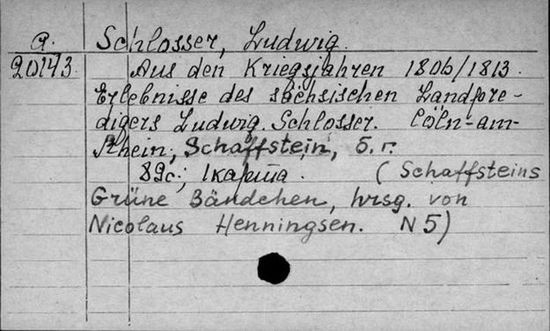 a. Schlosser, Ludwig.
20143. Aus den Kriegsjahren 1806/1813.
Erlebnisse des sächsischen Landpre-
digers Ludwig Schlosser. Cöln-am-
Rhein, Schaffstein, б.г.
89с.; 1карта. (Schaffsteins
Grüne Bändchen, hrsg. von
Nicolaus Henningsen. N5)